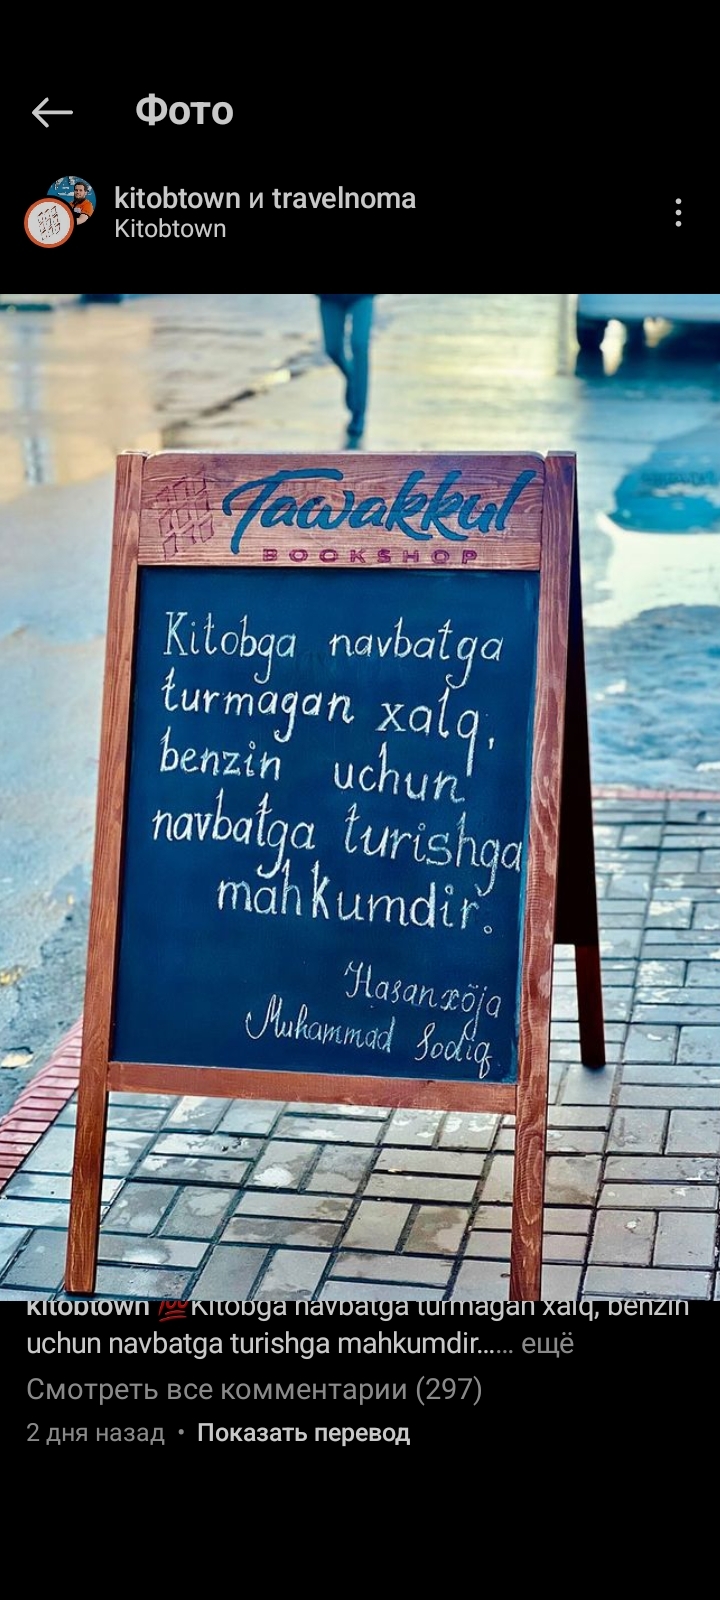 Фото
kitobtown и travelnoma
Kitobtown
Tawakkul
BOOKSHOP
Kitobga navbatga
turmagan xalq,
benzin uchun
navbatga turishga
mahkumdir.
Hasanxõja
Muhammad Sodiq
kitobtown 💯Kitobga navbatga turmagan xalq, benzin
uchun navbatga turishga mahkumdir...... ещё
Смотреть все комментарии (297)
2 дня назад • Показать перевод